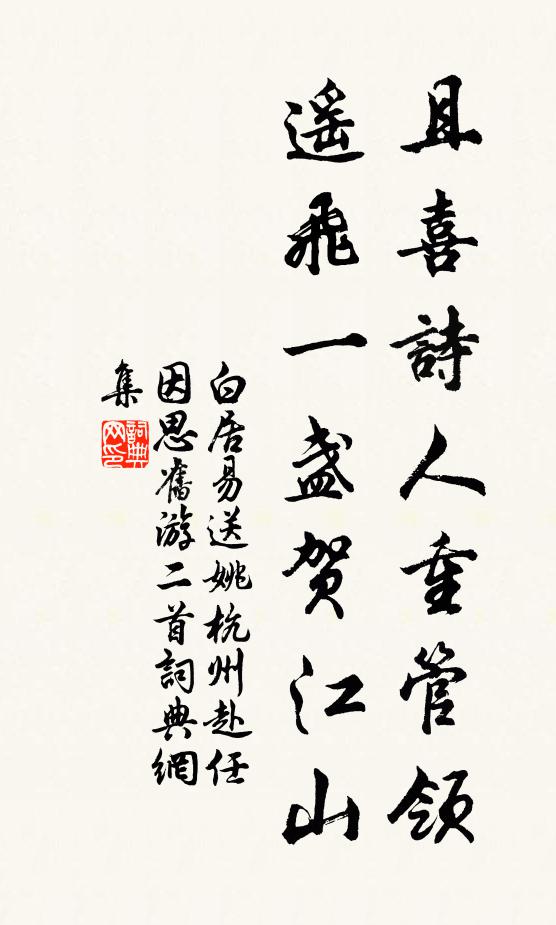 且喜詩人重管領
遥飛一盞賀江山
白居易送姚杭州赴任
因思舊游二首詞典網
集
詞典網印